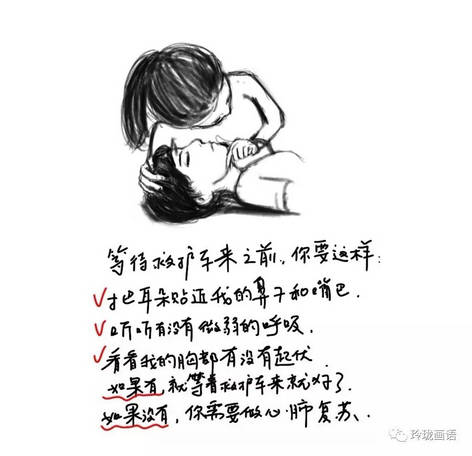 等待救护车来之前，你要这样：
✓把耳朵贴近我的鼻子和嘴巴．
✓听听有没有微弱的呼吸．
✓看看我的胸部有没有起伏．
如果有，就等着救护车来就好了．
如果没有，你需要做心肺复苏．
玲珑画语